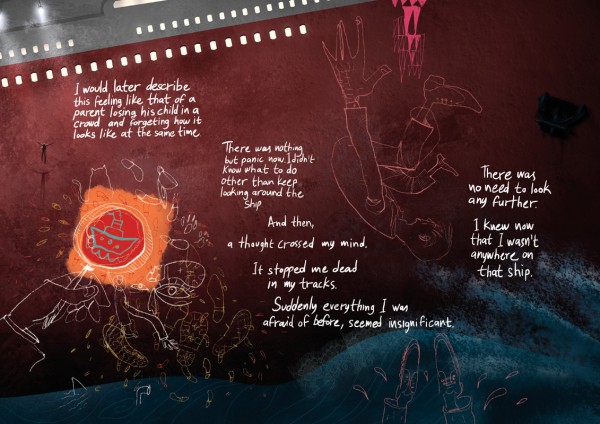 I would later describe
this feeling like that of a
parent losing his child in a
crowd and forgeting how it
looks like at the same time.
There was nothing
but panic now. I didn't
know what to do
other than keep
looking around the
ship.
And then,
a thought crossed my mind.
It stopped me dead
in my tracks.
Suddenly everything I was
afraid of before, seemed insignificant.
There was
no need to look
any further.
I knew now
that I wasn't
anywhere on
that ship.